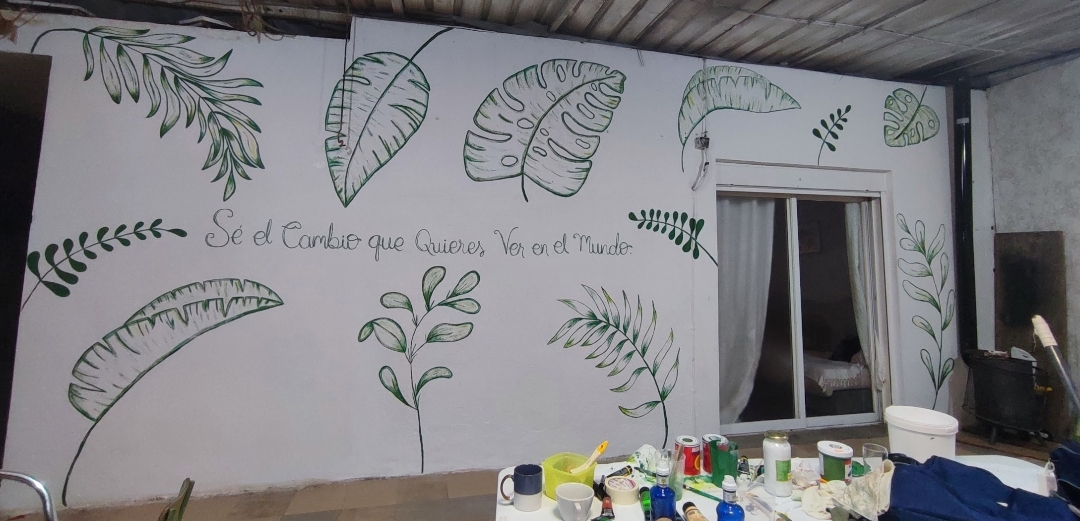 Sé el Cambio que Quieres Ver en el Mundo.